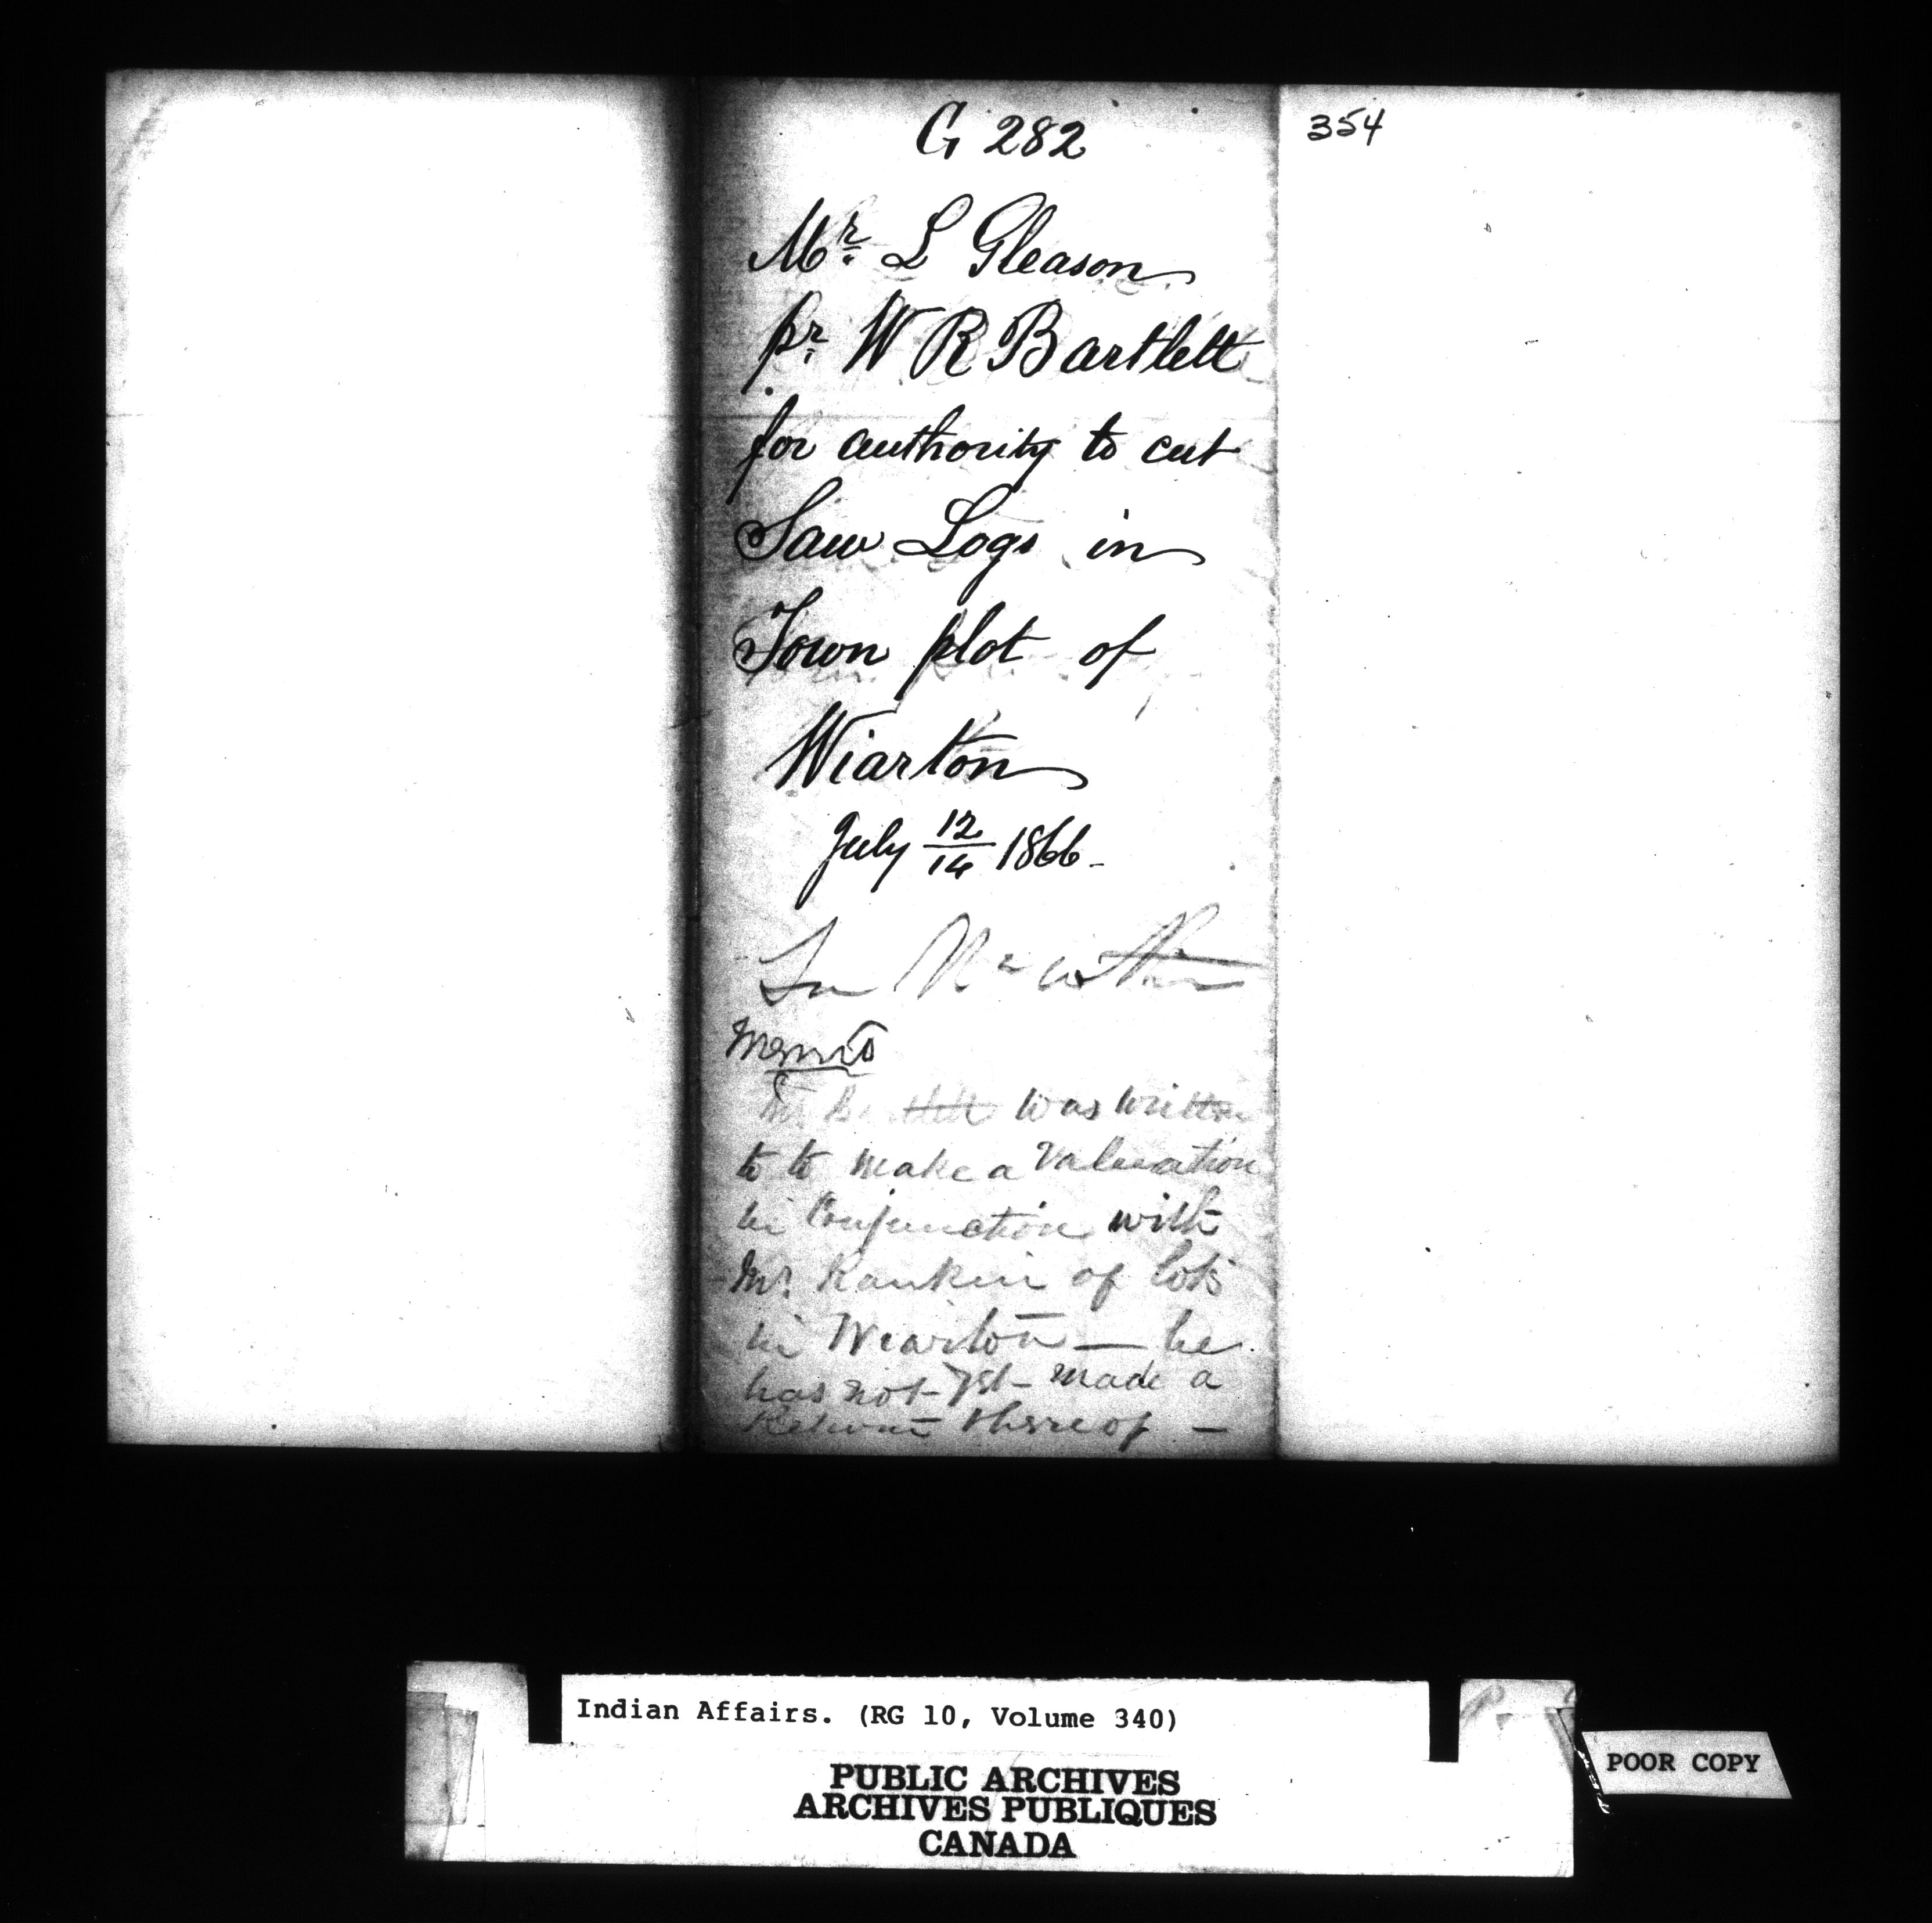 G 282
354
Mr. L Gleason
pr. W R Bartlett
for authority to cut
Saw Logs in
Town plot of
Wiarton
July 12/14 1866-
Memo
Mr. Bartlett was written
to to make a valuation
in Conjunction with
Mr. Rankin of lots
in Wiarton — he
has not yet made a
Return thereof —
Indian Affairs. (RG 10, Volume 340)
PUBLIC ARCHIVES
ARCHIVES PUBLIQUES
CANADA
POOR COPY